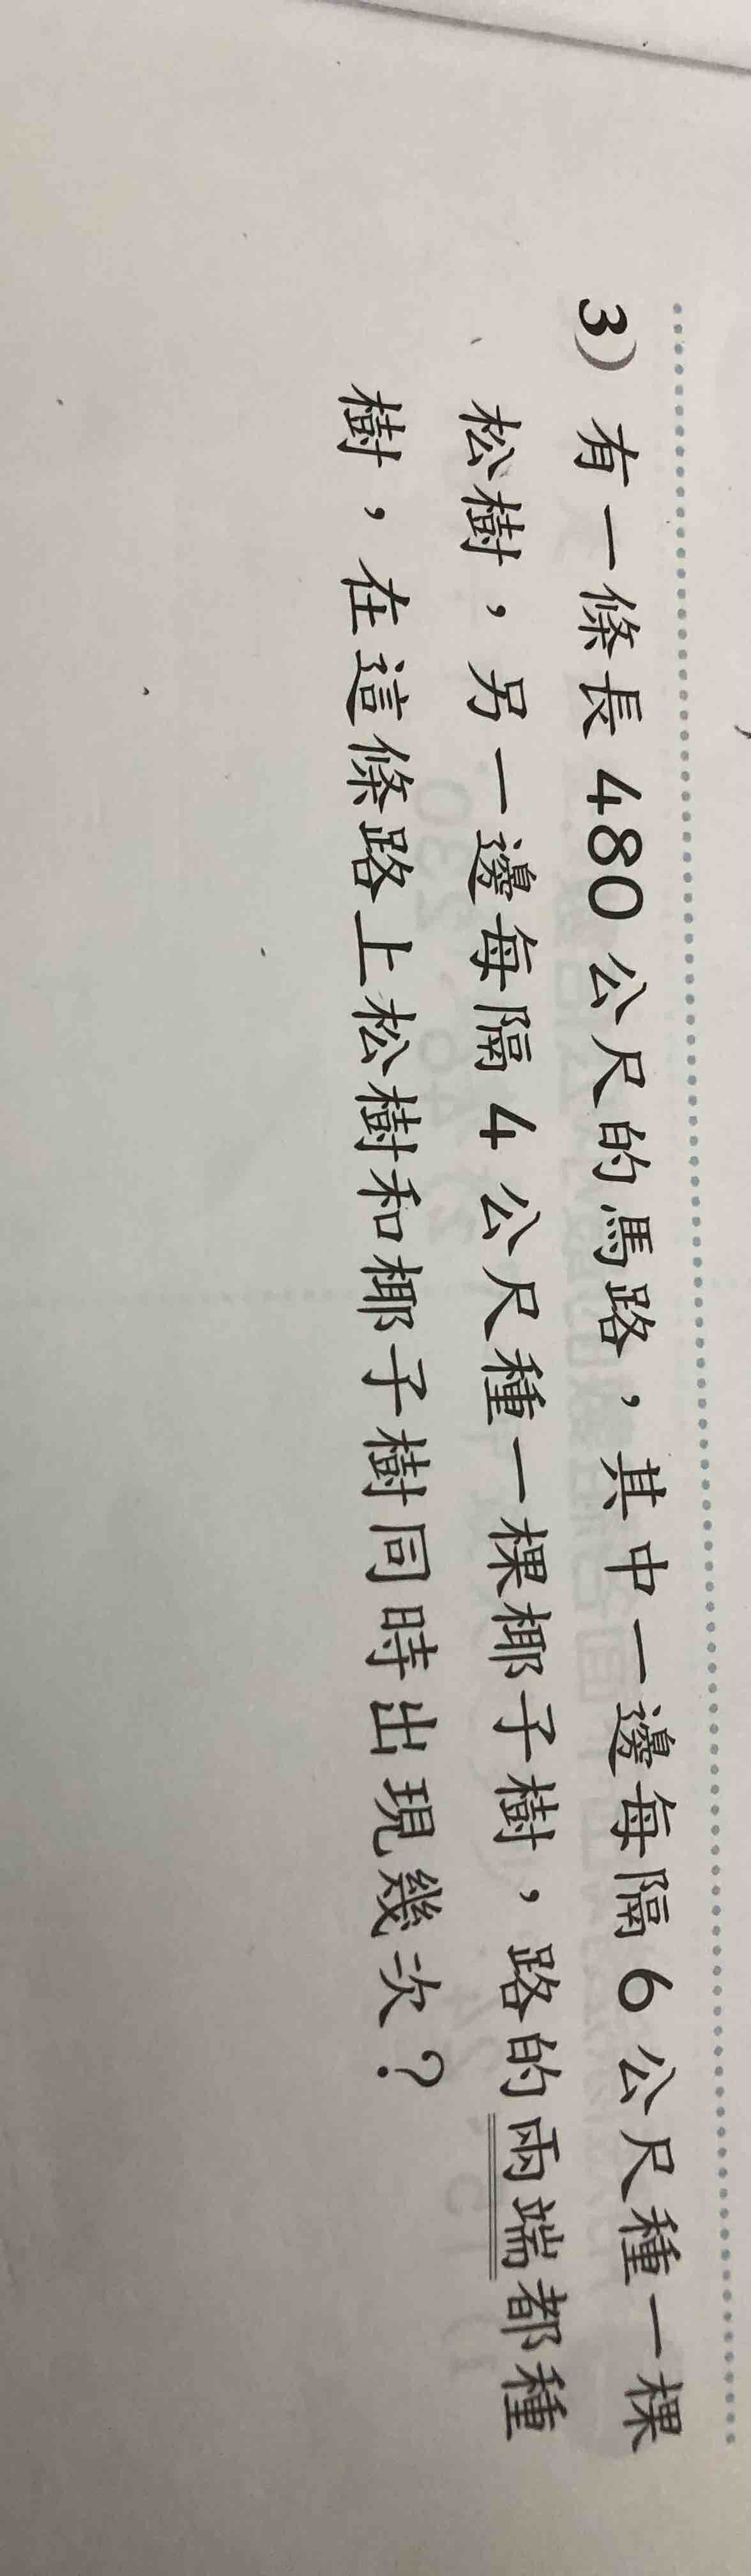 3) 有一條長 480 公尺的馬路，其中一邊每隔 6 公尺種一棵
松樹，另一邊每隔 4 公尺種一棵椰子樹，路的兩端都種
樹，在這條路上松樹和椰子樹同時出現幾次？